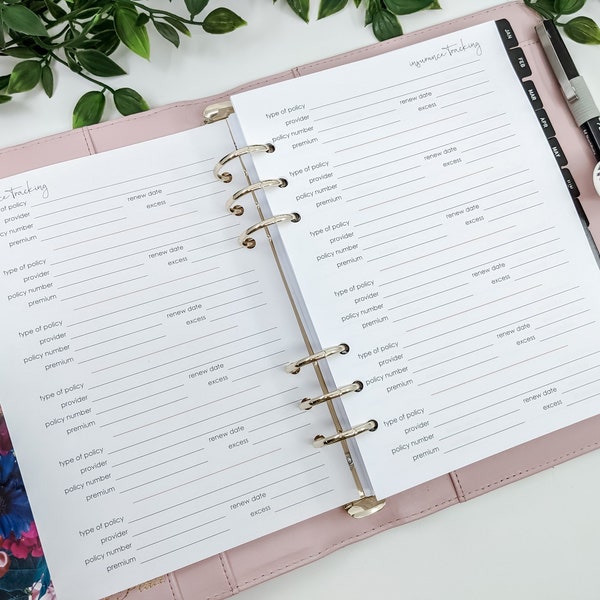 ce tracking
type of policy
provider renew date
policy number excess
premium
type of policy
provider renew date
policy number excess
premium
type of policy
provider renew date
policy number excess
premium
type of policy
provider renew date
policy number excess
premium
type of policy
provider renew date
policy number excess
premium
type of policy
provider renew date
policy number excess
premium
insurance tracking
type of policy
provider renew date
policy number excess
premium
type of policy
provider renew date
policy number excess
premium
type of policy
provider renew date
policy number excess
premium
type of policy
provider renew date
policy number excess
premium
type of policy
provider renew date
policy number excess
premium
type of policy
provider renew date
policy number excess
premium
JAN
FEB
MAR
APR
MAY
JUN